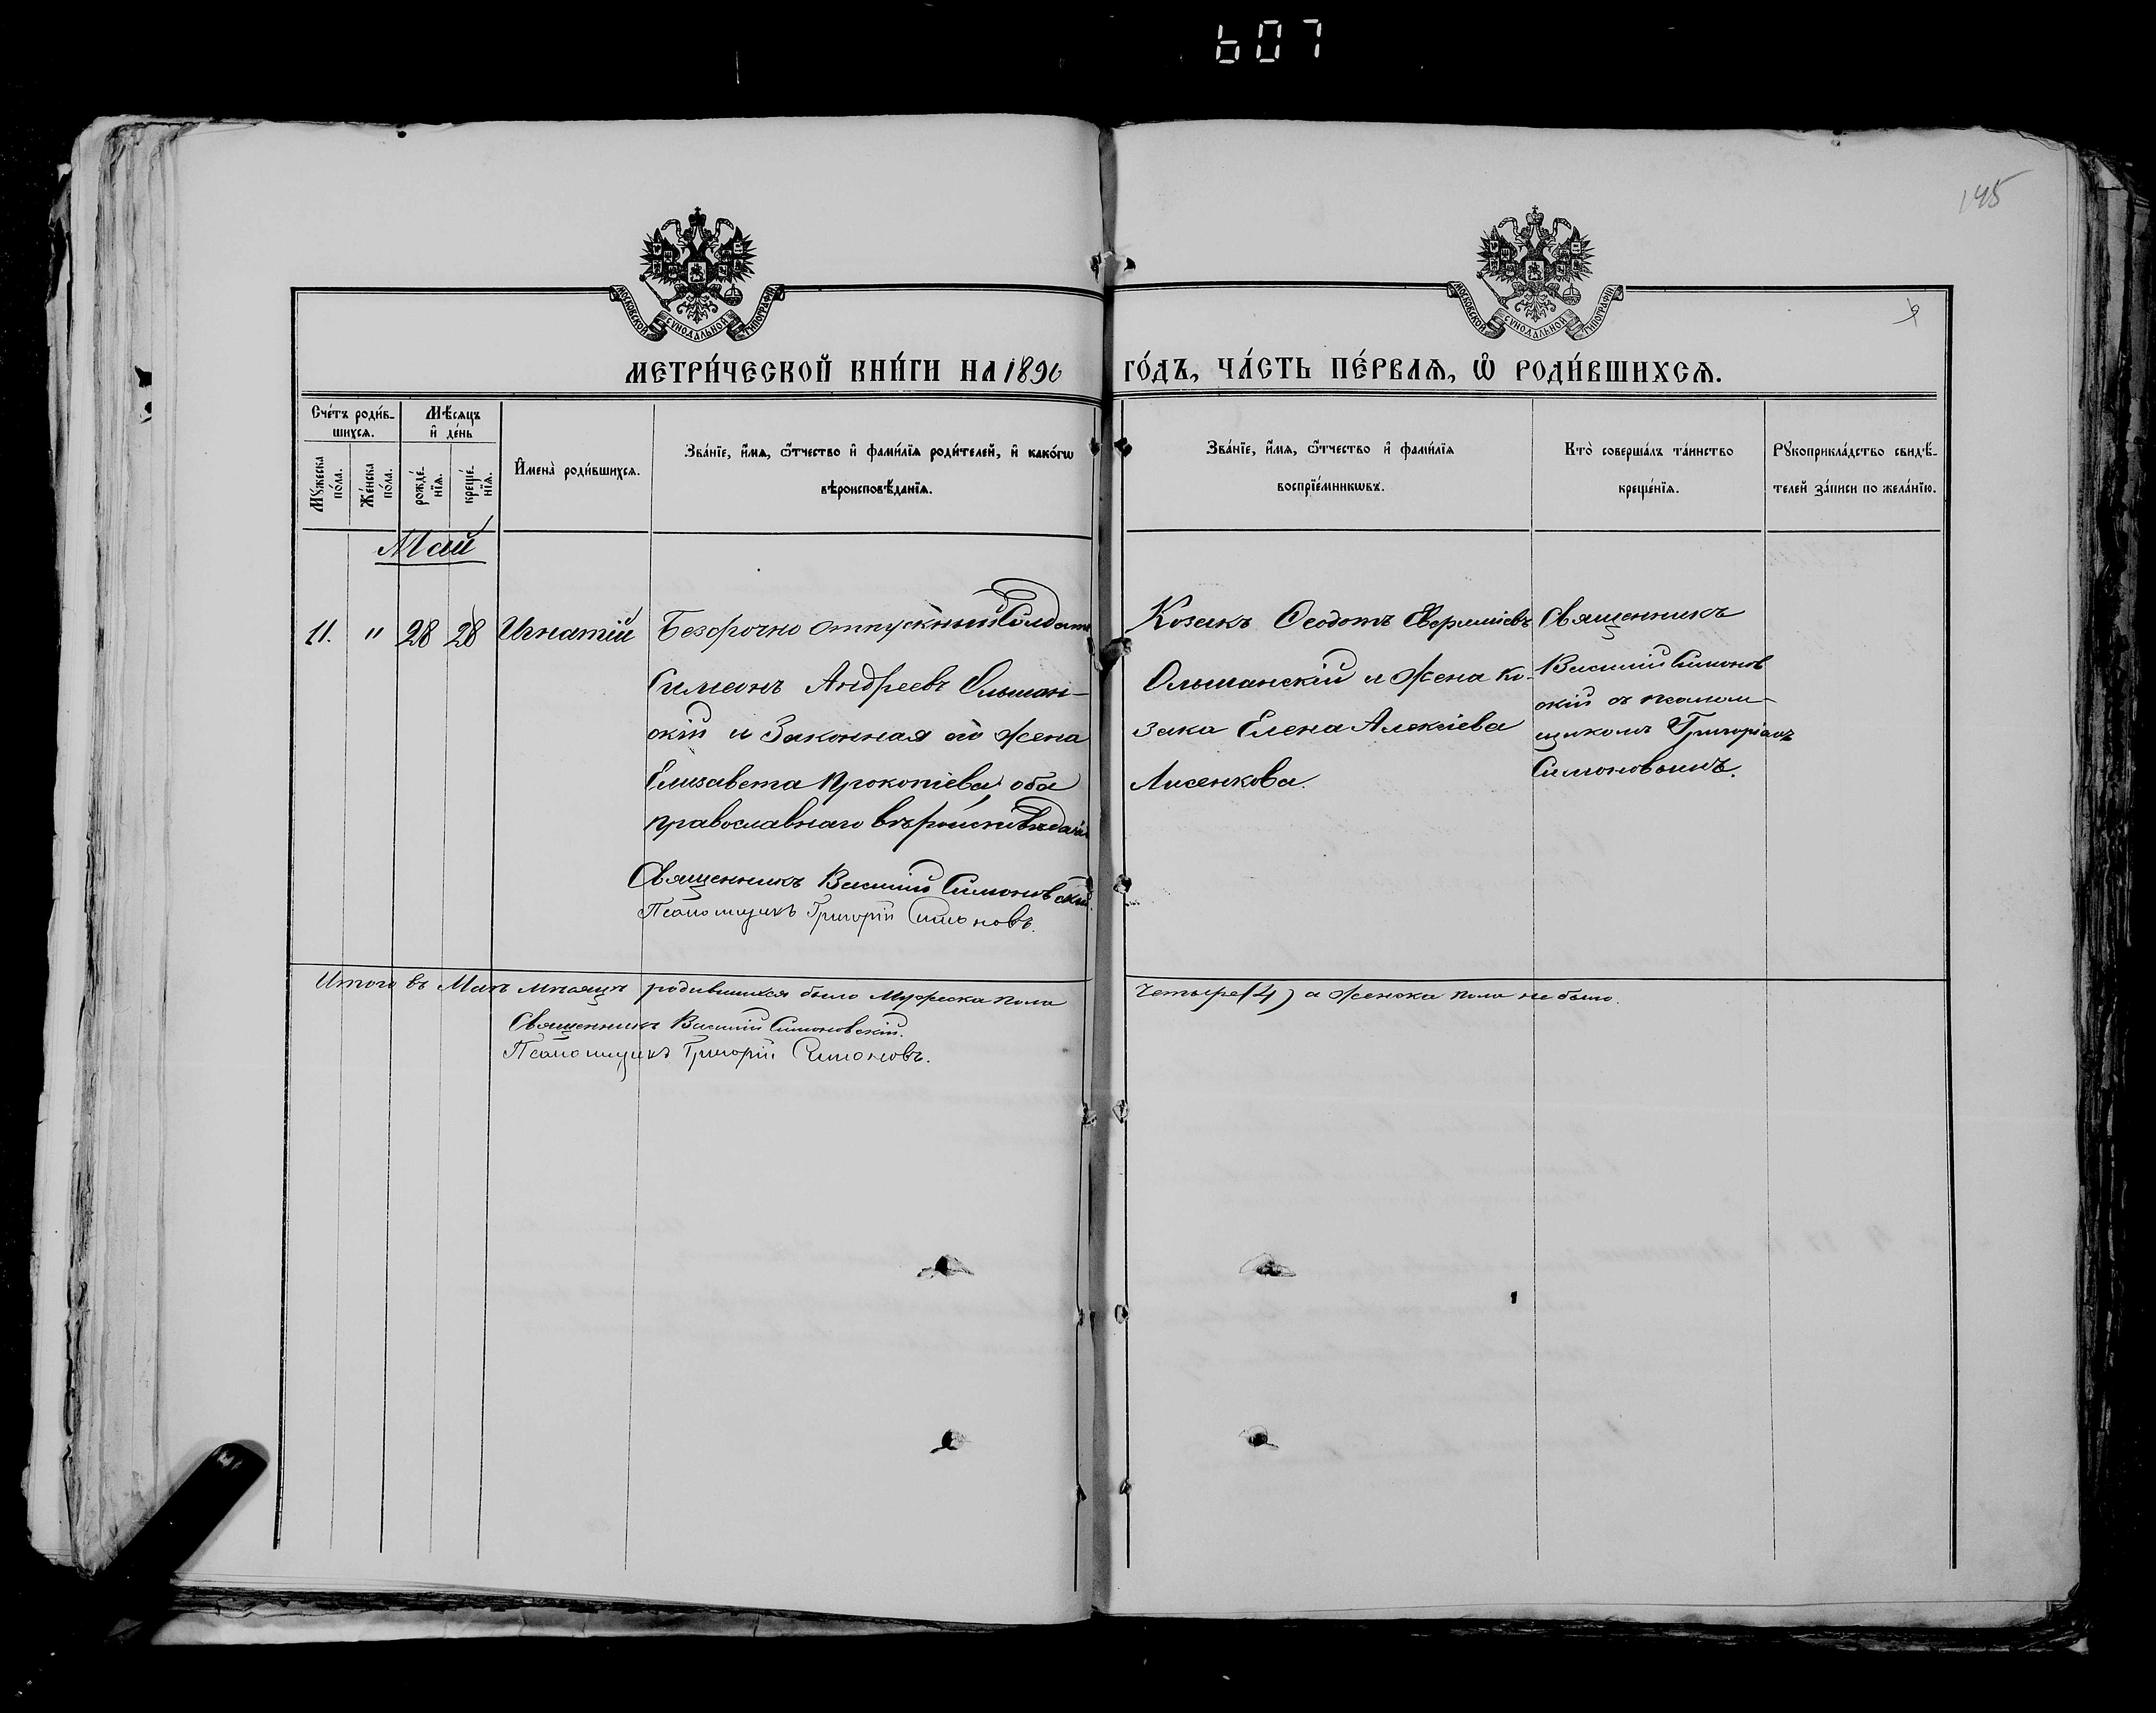 607
145
МОСКОВСКОЙ СУНОДАЛЬНОЙ ТИПОГРАФІИ
МОСКОВСКОЙ СУНОДАЛЬНОЙ ТИПОГРАФІИ
МЕТРИ́ЧЕСКОЙ КНИ́ГИ НА 1890 ГО́ДЪ, ЧА́СТЬ ПЕ́РВАѦ, Ѡ РОДИ́ВШИХСѦ.
Сче́тъ роди́в-
шихсѧ.
Мѣ́сѧцъ
и де́нь
Мꙋ́жеска по́ла.
Же́нска по́ла.
рожде́нїѧ.
креще́нїѧ.
И҆мена̀ роди́вшихсѧ.
Зва́нїе, и҆́мѧ, ѻ҆́тчество и҆ фами́лїѧ роди́телей, и҆ како́гѡ
вѣроисповѣ́данїѧ.
Зва́нїе, и҆́мѧ, ѻ҆́тчество и҆ фами́лїѧ
воспрїе́мникѡвъ.
Кто̀ соверша́лъ та́инство
креще́нїѧ.
Рꙋкоприкла́дство свидѣ́-
телей за́писи по жела́нїю.
Май
11. " 28 28 Игнатій
Безсрочно отпускный Солдатъ
Симеонъ Андреевъ Ольшан-
скій и Законная его жена
Елизавета Прокопіева оба
православнаго вѣроисповѣданія
Священникъ Василій Симоновскій.
Псаломщикъ Григорій Симоновъ.
Козакъ Ѳеодотъ
Ольшанскій и жена ко-
зака Елена Алексіева
Лисенкова.
Священникъ
Василій Симонов
скій съ псалом-
щикомъ Григоріемъ
Симоновымъ.
Итого въ Маѣ мѣсяцѣ родившихся было мужеска пола четыре (4) а женска пола не было.
Священникъ Василій Симоновскій.
Псаломщикъ Григорій Симоновъ.